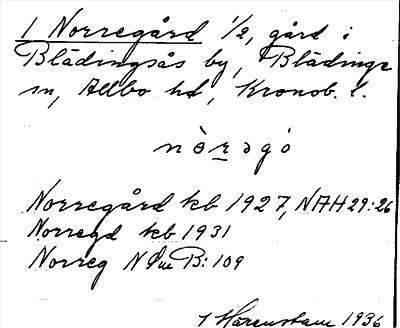 1 Norregård 1/2, gård i
Blädingsås by, Blädinge
sn, Allbo hd, Kronob. l.
nòrəgo
Norregård kb 1927, NAH 29:26
Norregd kb 1931
Norreg N B: 109
1936